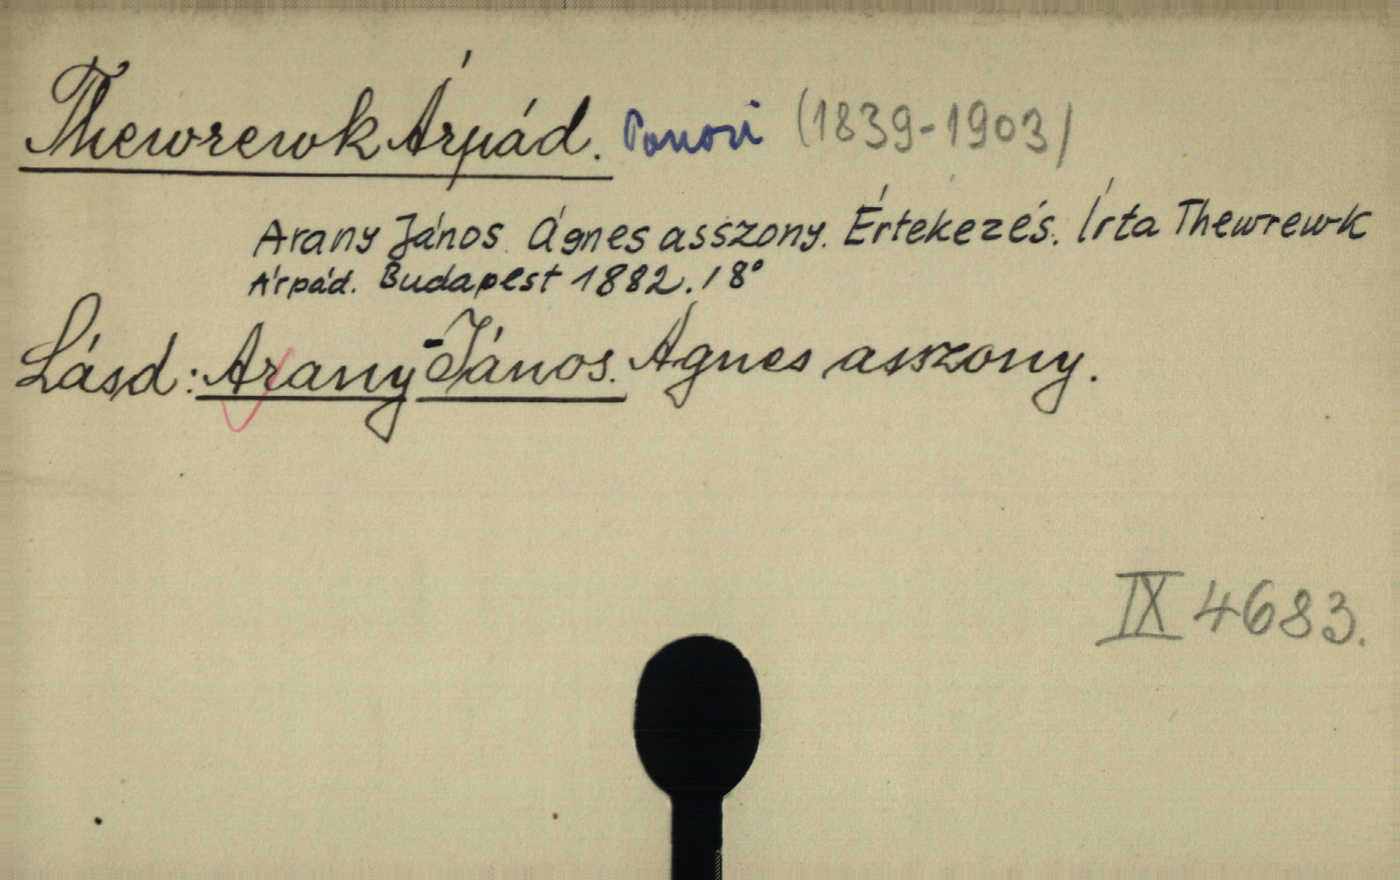 Thewrewk Árpád. Ponori (1839-1903)
Arany János Ágnes asszony. Értekezés. Írta Thewrewk
Árpád. Budapest 1882. / 8°
Lásd: Arany-János. Ágnes asszony.
IX 4683.